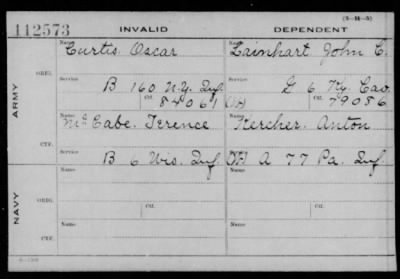 (3-M-5)
112573 INVALID DEPENDENT
Name Name
Curtis Oscar Lainhart John C.
ORIG. Service Service
B 160 N.Y. Inf. G 6 Ky. Cav.
ARMY Ctf. Ctf.
84061 (W) 79086
Name Name
McCabe, Terence Kercher, Anton
CTF. Service Service
B 6 Wis. Inf. (W) A 77 Pa. Inf.
Name Name
ORIG. Ctf. Ctf.
NAVY
Name Name
CTF.